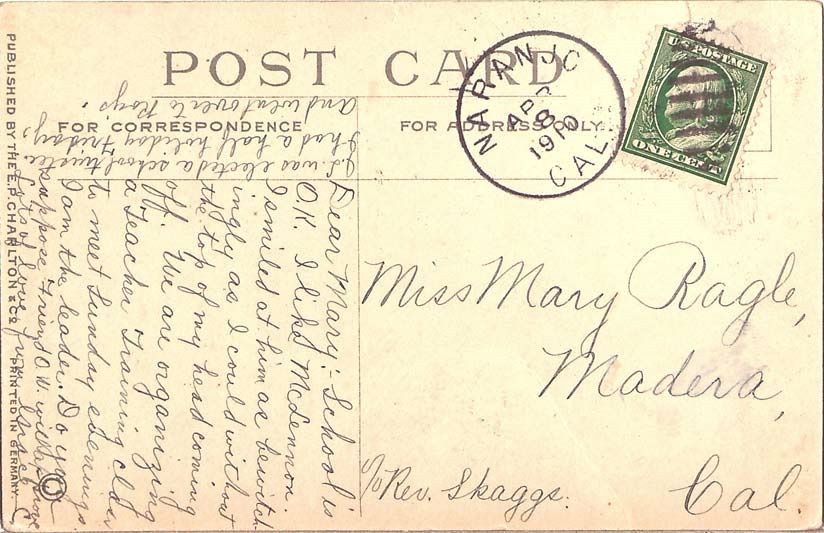 POST CARD
FOR CORRESPONDENCE
FOR ADDRESS ONLY.
NARANJO
APR
8
1910
CAL.
U.S. POSTAGE
ONE CENT
Dear Mary:- School is
O.K. I like McLennon.
I smiled at him as bewitch-
ingly as I could without
the top of my head coming
off. We are organizing
a Teacher Training class
to meet Sunday evenings.
I am the leader. Do you
suppose Friend O.W. will
Lots of love from
I was elected a school trustee.
I had a half holiday Friday,
and went over to Roy's.
Miss Mary Ragle,
Madera,
c/o Rev. Skaggs.
Cal
PUBLISHED BY THE E.P. CHARLTON & CO. PRINTED IN GERMANY.
©